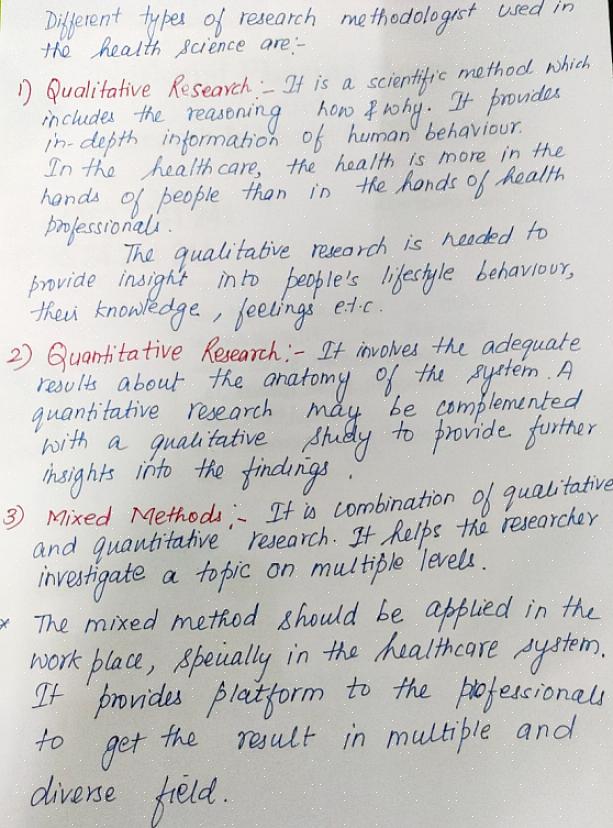 Different types of research methodologist used in
the health science are:-
1) Qualitative Research:- It is a scientific method which
includes the reasoning how & why. It provides
in-depth information of human behaviour.
In the healthcare, the health is more in the
hands of people than in the hands of health
professionals.
The qualitative research is needed to
provide insight into people's lifestyle behaviour,
their knowledge, feelings e.t.c.
2) Quantitative Research:- It involves the adequate
results about the anatomy of the system. A
quantitative research may be complemented
with a qualitative study to provide further
insights into the findings.
3) Mixed Methods:- It is combination of qualitative
and quantitative research. It helps the researcher
investigate a topic on multiple levels.
* The mixed method should be applied in the
work place, specially in the healthcare system.
It provides platform to the professionals
to get the result in multiple and
diverse field.